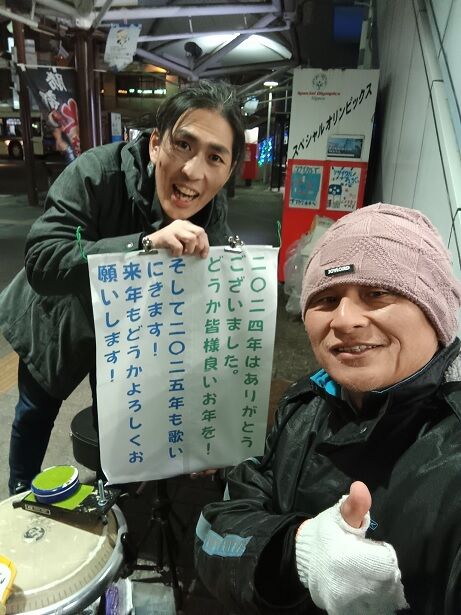 二〇二四年はありがとう
ございました。
どうか皆様良いお年を！
そして二〇二五年も歌い
にきます！
来年もどうかよろしくお
願いします！
Special Olympics
Nippon
スペシャルオリンピックス